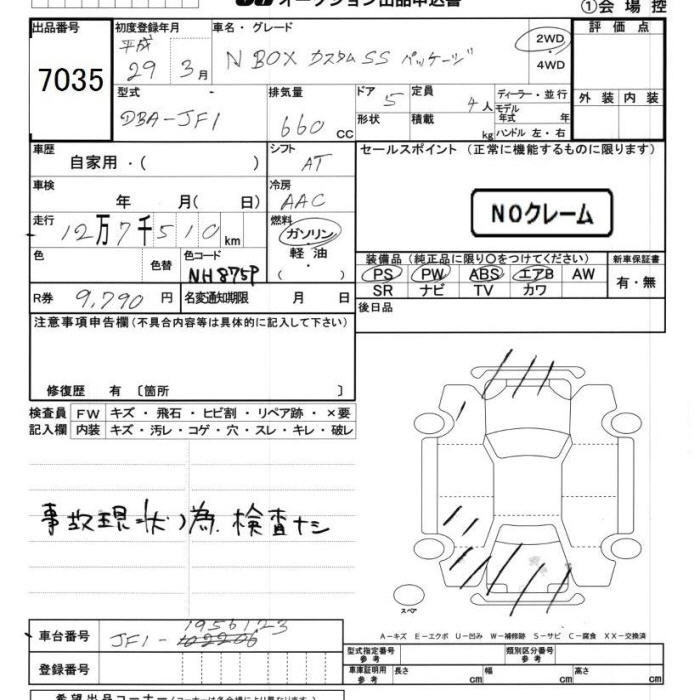 オークション出品申込書
①会場控
出品番号 初度登録年月 車名・グレード 評価点
7035 平成 29 3月 N BOX カスタム SS パッケージ 2WD
・4WD
型式 排気量 ドア 5 定員 4人 ディーラー・並行 外装 内装
DBA-JF1 660 CC 形状 積載 kg モデル年式 年
ハンドル 左・右
車歴 シフト セールスポイント (正常に機能するものに限ります)
自家用・( ) AT
車検 冷房
年 月( 日) AAC NOクレーム
走行 燃料
12万7千510km ガソリン
色 色替 色コード 軽油 装備品 (純正品に限り○をつけてください) 新車保証書
NH875P ・( ) PS PW ABS エアB AW 有・無
SR ナビ TV カワ
R券 9,790円 名変通知期限 月 日 後日品
注意事項申告欄(不具合内容等は具体的に記入して下さい)
修復歴 有 〔箇所 〕
検査員 FW キズ・飛石・ヒビ割・リペア跡・×要
記入欄 内装 キズ・汚レ・コゲ・穴・スレ・キレ・破レ
事故現状ノ為 検査ナシ
スペア
A-キズ E-エクボ U-凹み W-補修跡 S-サビ C-腐食 XX-交換済
1956123
車台番号 JF1-
型式指定番号 参考 類別区分番号 参考
登録番号 車庫証明用 参考 長さ cm 幅 cm 高さ cm
希望出品コーナー(コーナーは各会場により異なります)